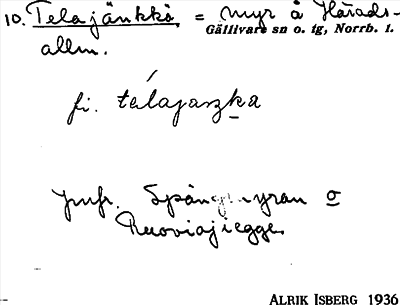 10. Telajänkkä = myr å Härads-
Gällivare sn o. tg, Norrb. l.
allm.
fi. télajaszka
jmfr. Spångmyran o
Ruoviajiegge
ALRIK ISBERG 1936